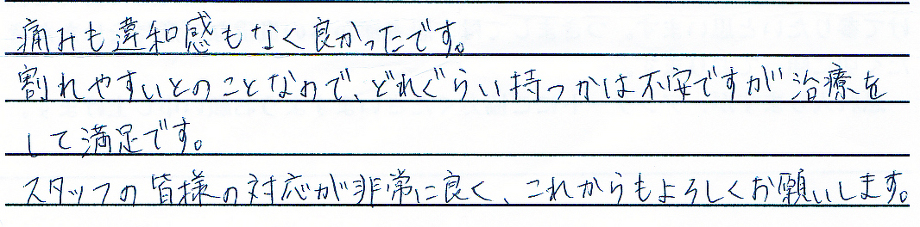 痛みも違和感もなく良かったです。
割れやすいとのことなので、どれぐらい持つかは不安ですが治療を
して満足です。
スタッフの皆様の対応が非常に良く、これからもよろしくお願いします。